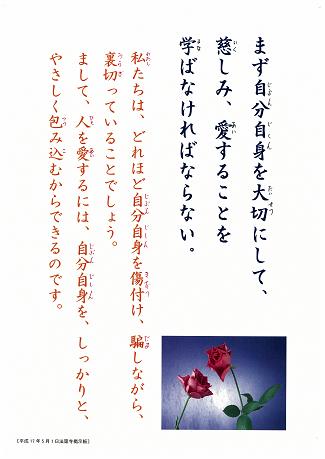 まず自分自身を大切にして、
慈しみ、愛することを
学ばなければならない。
私たちは、どれほど自分自身を傷付け、騙しながら、
裏切っていることでしょう。
まして、人を愛するには、自分自身を、しっかりと、
やさしく包み込むからできるのです。
【平成17年5月1日寺掲示板】